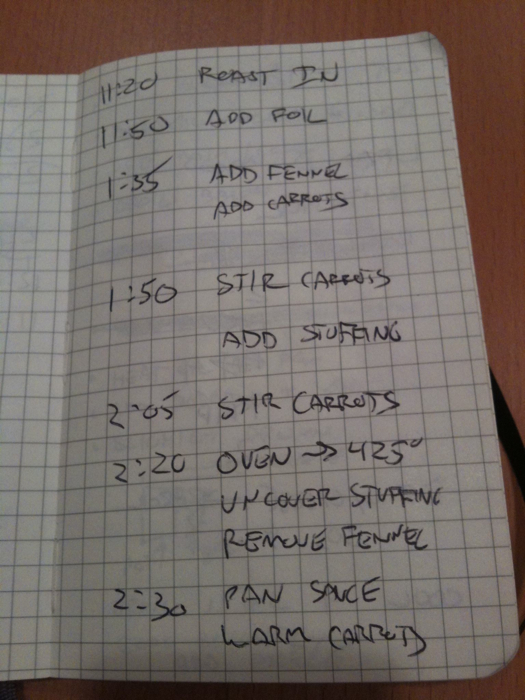 11:20 ROAST IN
11:50 ADD FOIL
1:35 ADD FENNEL
ADD CARROTS
1:50 STIR CARROTS
ADD STUFFING
2:05 STIR CARROTS
2:20 OVEN → 425°
UNCOVER STUFFING
REMOVE FENNEL
2:30 PAN SAUCE
WARM CARROTS